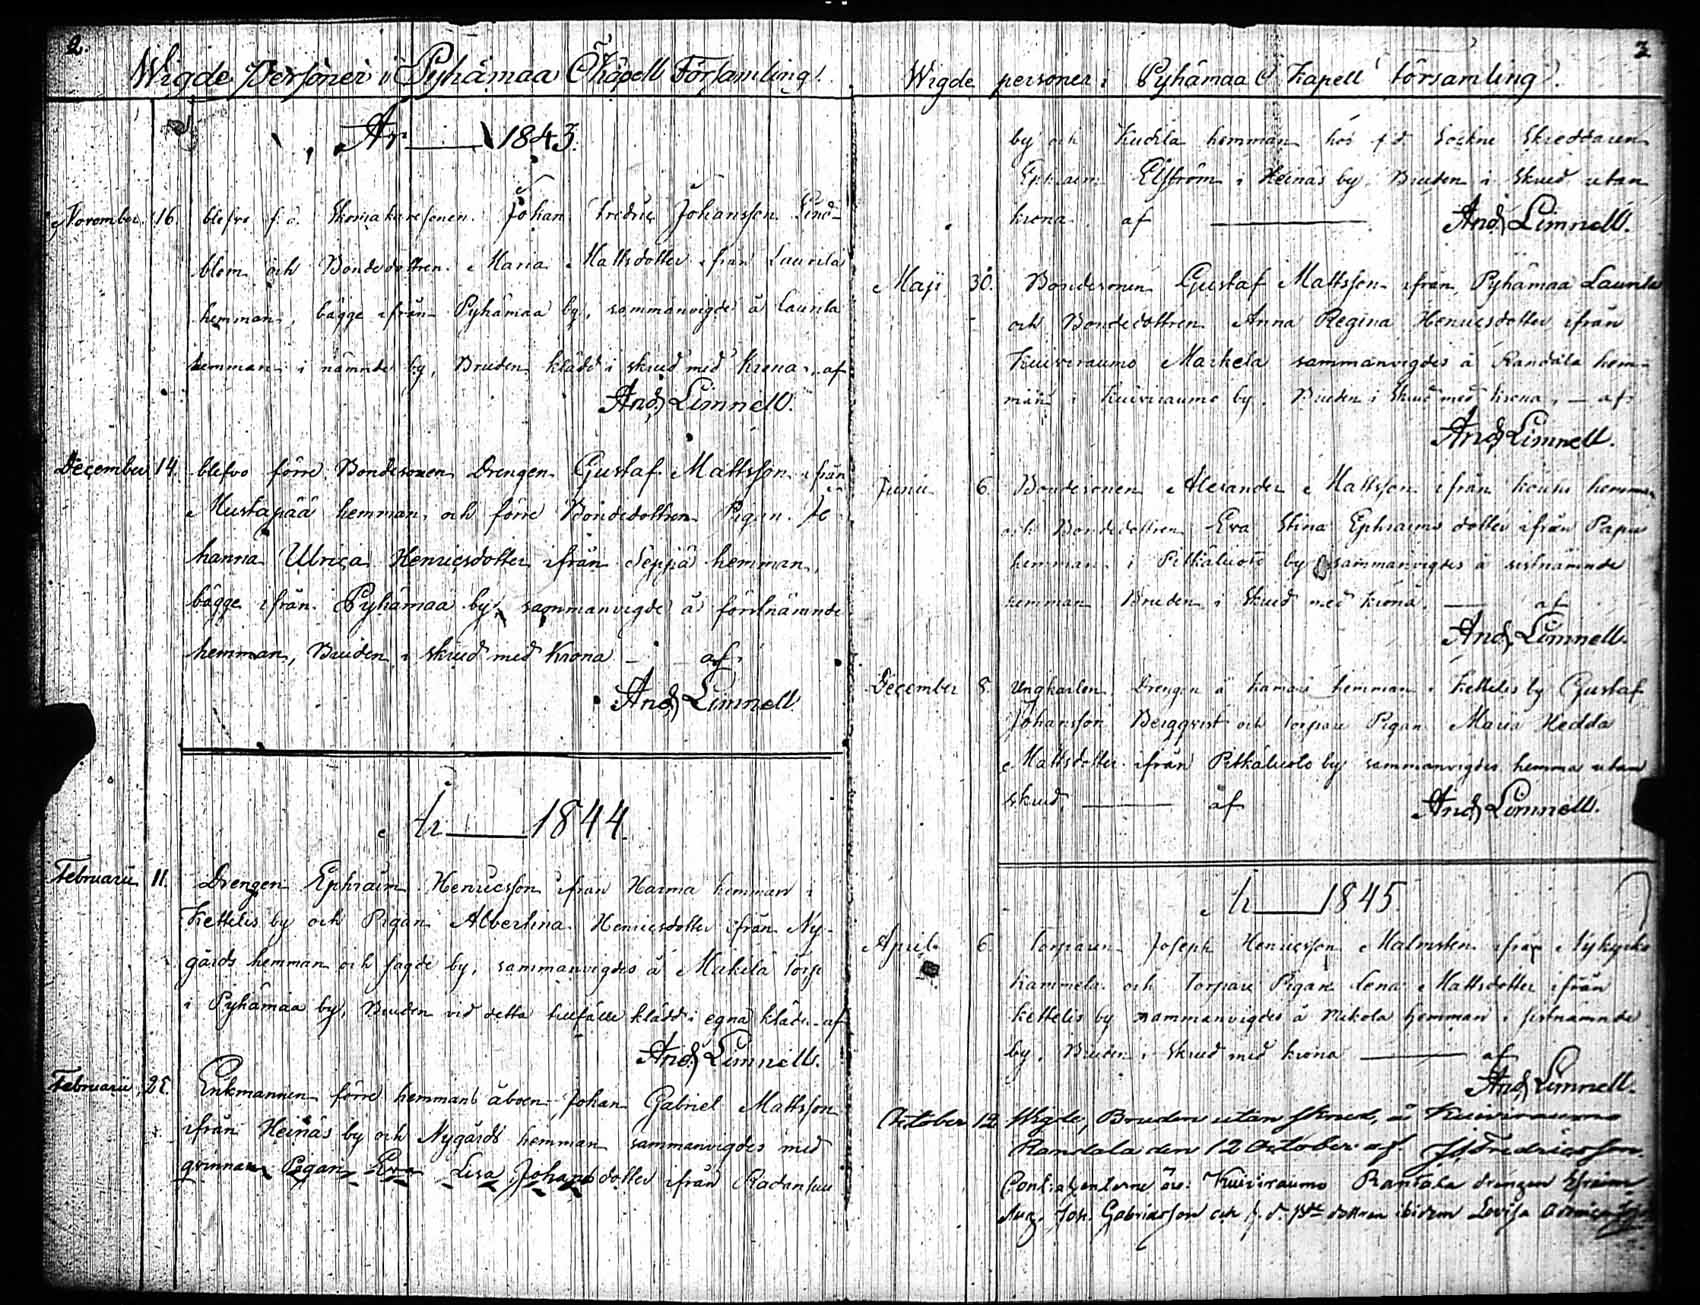 2.
Wigde Personer i Pyhämaa Capell Församling.
År 1843.
November 16. blefvo f. d. Skomakaresonen Johan Fredric Johansson Lind-
blom och Bondedottren Maria Mattsdotter ifrån Laurila
hemman, bägge ifrån Pyhämaa by, sammanvigde å Laurila
hemman i nämnde by, Bruden klädd i skrud med Krona, af
And. Limnell.
December 14. blefvo förre Bondesonen Drengen Gustaf Mattsson ifrån
Mustapää hemman, och förre Bondedottren Pigan Jo-
hanna Ulrica Henricsdotter ifrån Seppä hemman,
bägge ifrån Pyhämaa by, sammanvigde å förstnämnde
hemman, Bruden i skrud med Krona — af
And. Limnell
År 1844.
Februarii 11. Drengen Ephraim Henricsson ifrån Harma hemman i
Kettelis by och Pigan Albertina Henricsdotter ifrån Ny-
gårds hemman och sagde by, sammanvigdes å Makela torp
i Pyhämaa by, Bruden vid detta tillfälle klädd i egna kläder af
And. Limnell.
Februarii Enkmannen förre hemmans åboen Johan Gabriel Mattsson
ifrån Heinäs by och Nygårds hemman sammanvigdes med
qvinnan Pigan Eva Lisa Johansdotter ifrån Radansuu
3
Wigde personer i Pyhämaa Kapell församling.
by och hemman hos f. d. Sockne Skreddaren
Ephraim Elfström i Heinäs by, Bruden i skrud utan
krona af And. Limnell.
Maji 30. Bondesonen Gustaf Mattsson ifrån Pyhämaa Laurila
och Bondedottren Anna Regina Henricsdotter ifrån
Kuiviraumo Markela sammanvigdes å Randala hem-
man i Kuiviraumo by, Bruden i skrud med krona, — af
And. Limnell.
Junii 6. Bondesonen Alexander Mattsson ifrån hemman
och Bondedottren Eva Stina Ephraims dotter ifrån Papu
hemman i Pitkäluoto by sammanvigdes å sistnämnde
hemman Bruden i Skrud med krona. — af
And. Limnell.
December 8. Ungkarlen Drengen å hemman i Kettelis by Gustaf
Johansson Bergqvist och torpare Pigan Maria Hedda
Mattsdotter ifrån Pitkäluoto by sammanvigdes hemma utan
skrud — af And. Limnell.
År 1845.
April 6. Torparen Joseph Henricsson Malmsten ifrån Nykyrko
Kammela och Torpare Pigan Lena Mattsdotter ifrån
Kettelis by sammanvigdes å Nikola hemman i sistnämnde
by, Bruden i Skrud med krona — af
And. Limnell.
October 12. Wigde, Bruden utan skrud, å Kuiviraumo
Randala den 12 October af Fredricsson.
Contrahenterne äro Kuiviraumo Randala drängen Efraim
Joh. Gabrielsson och f. d. dottren ibidem Lovisa